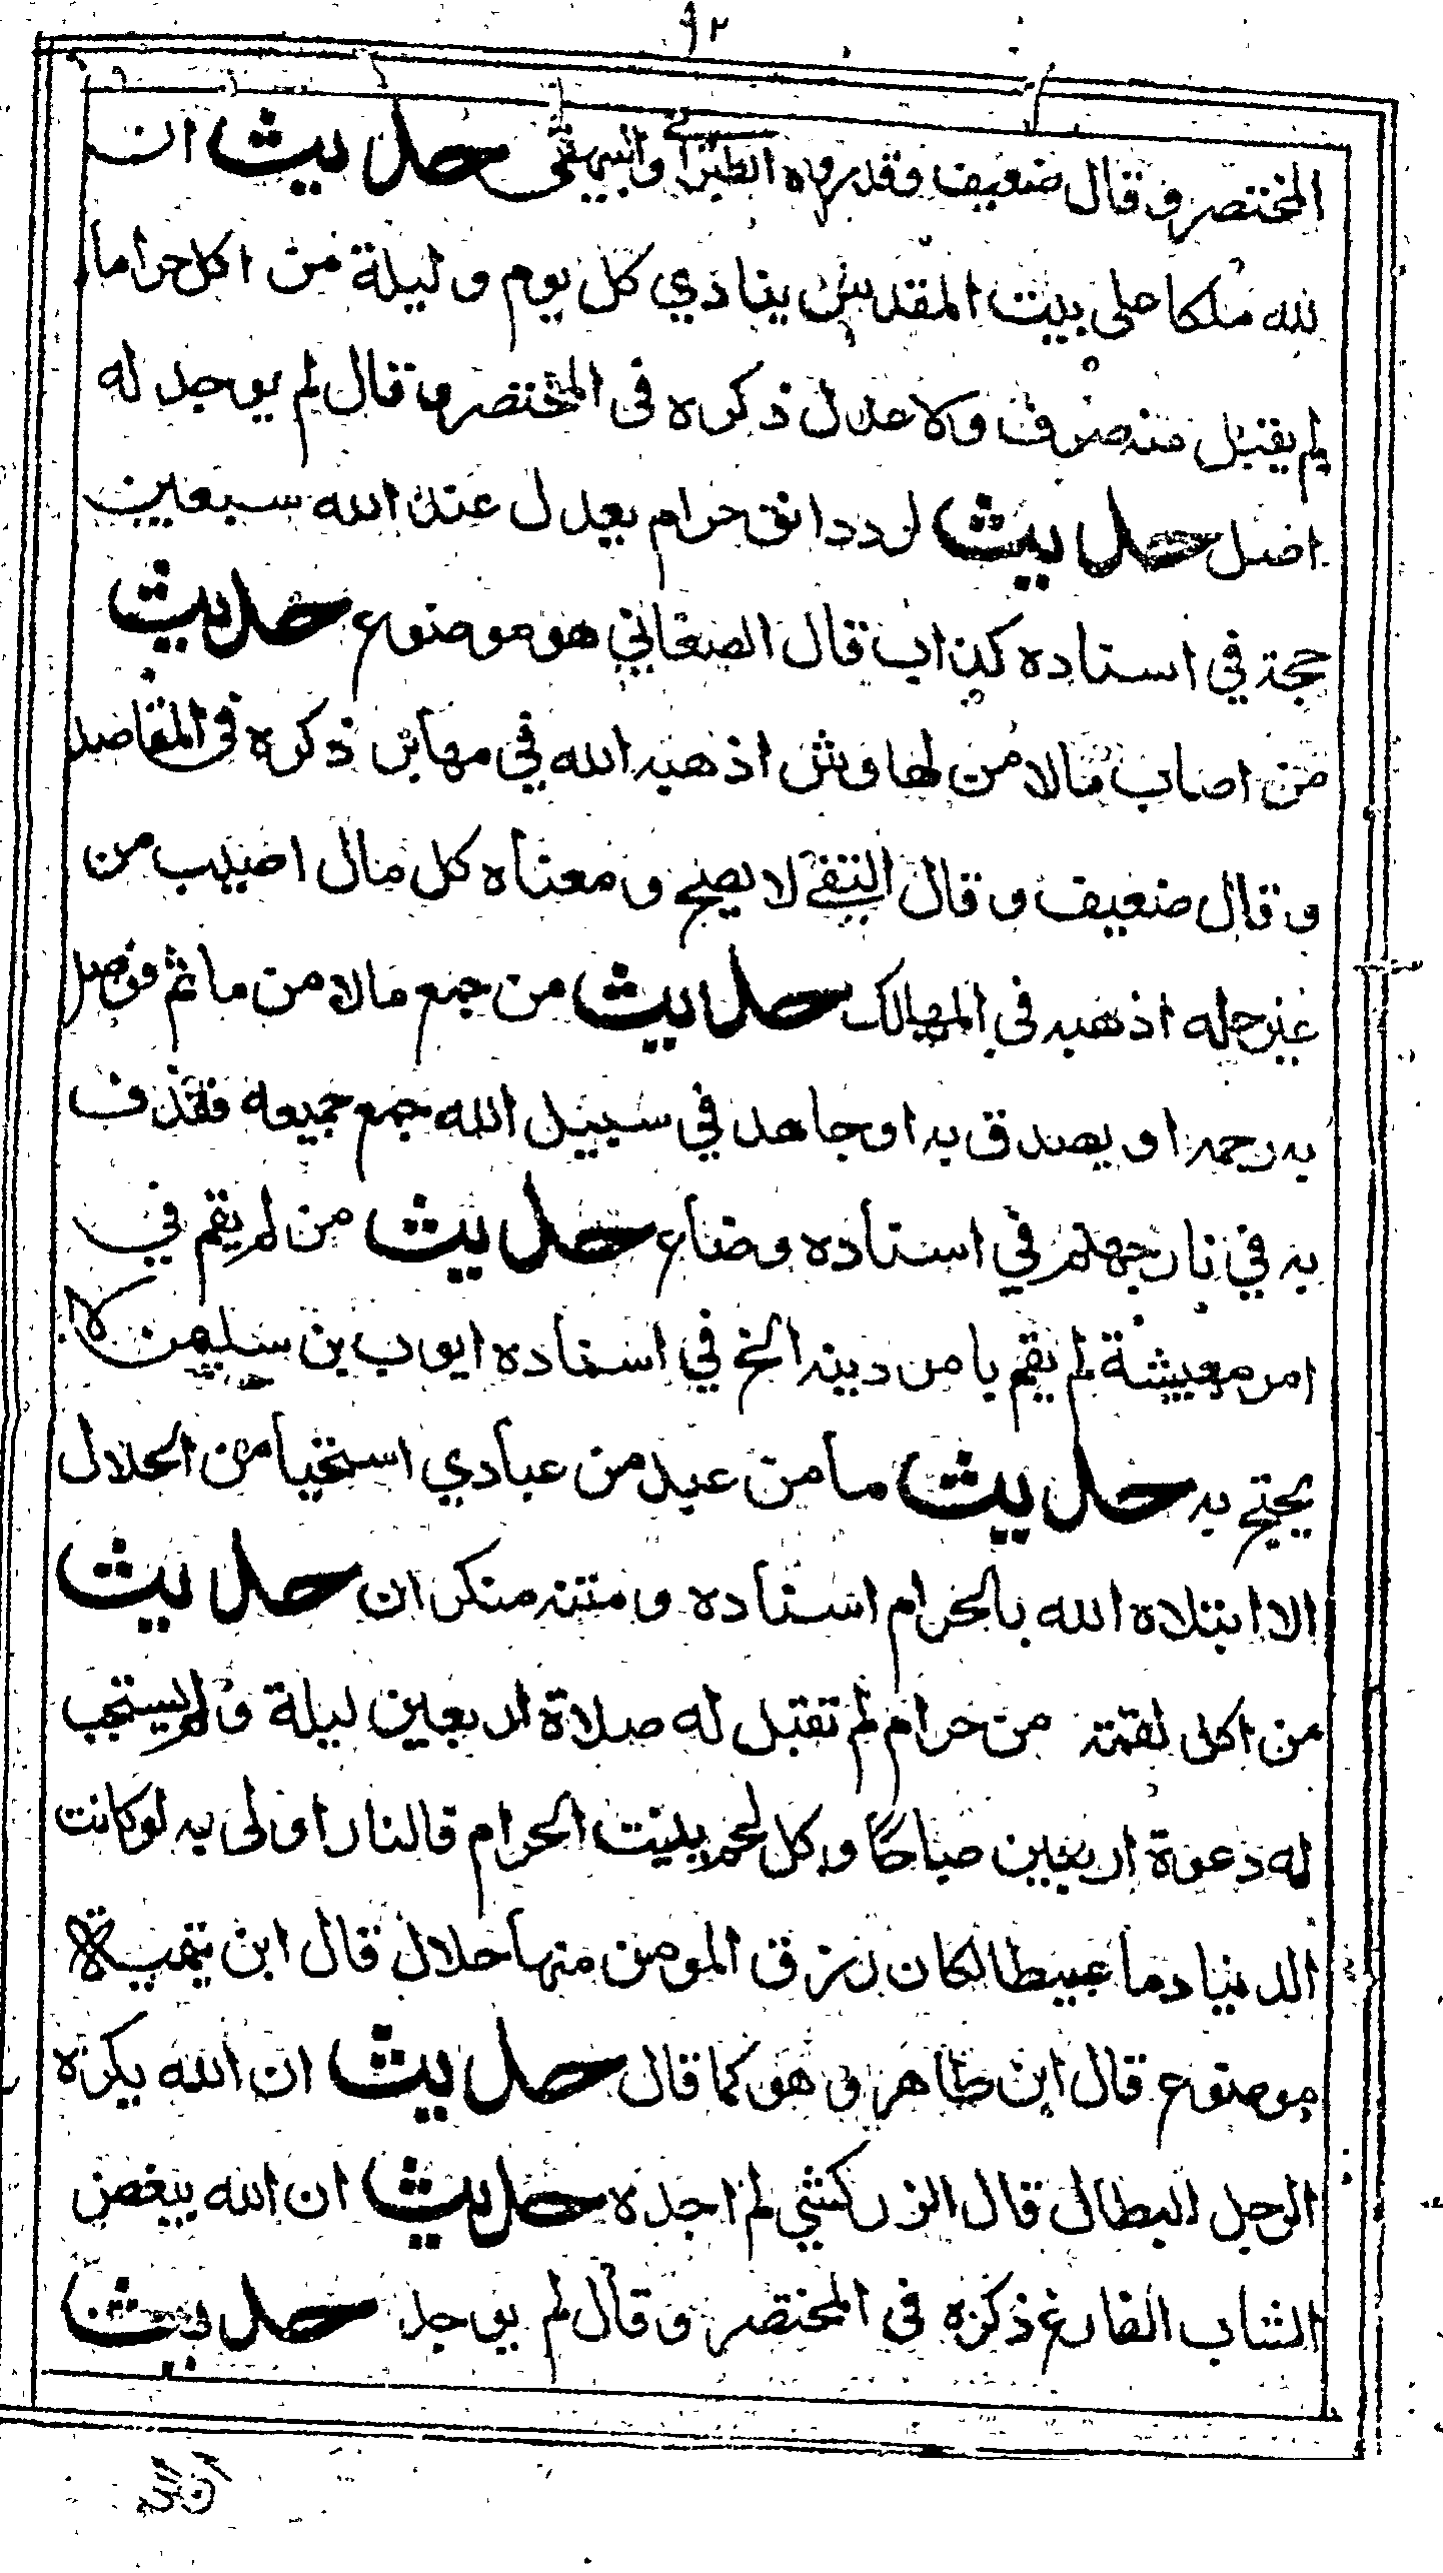 ٩٢
المختصر وقال ضعيف وقد رواه الطبراني والبيهقي حديث ان
لله ملكا على بيت المقدس ينادي كل يوم وليلة من اكل حراما
لم يقبل منه صرف ولا عدل ذكره في المختصر وقال لم يوجد له
اصل حديث لرد دانق حرام يعدل عند الله سبعين
حجة في اسناده كذاب قال الصغاني هو موضوع حديث
من اصاب مالا من لهاوش اذهبه الله في مهابر ذكره في المقاصد
وقال ضعيف وقال التقي لا يصح ومعناه كل مال اصيب من
غير حله اذهبه في المهالك حديث من جمع مالا من ماثم فوصل
به رحمه او يصدق به او جاهد في سبيل الله جمع جميعه فقذف
به في نار جهنم في اسناده وضاع حديث من لم يقم في
امر معيشة لم يقم بامن دينه الخ في اسناده ايوب بن سليمن لا
يحتج به حديث ما من عبد من عبادي استحيا من الحلال
الا ابتلاه الله بالحرام اسناده ومتنه منكران حديث
من اكل لقمته من حرام لم تقبل له صلاة اربعين ليلة ولم يستجب
له دعوة اربعين صباحا وكل لحم ينبت الحرام فالنار اولى به لو كانت
الدنيا دما عبيطا لكان رزق المومن منها حلال قال ابن تيمية
موضوع قال ابن طاهر وهو كما قال حديث ان الله يكره
الرجل البطال قال الزركشي لم اجده حديث ان الله يبغض
الشاب الفارغ ذكره في المختصر وقال لم يوجد حديث